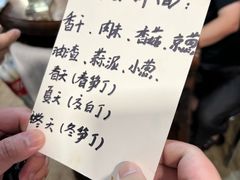 香干、肉沫、香菇、京葱
油渣、蒜泥、小葱、
春天(春笋丁)
夏天(茭白丁)
冬天(冬笋丁)